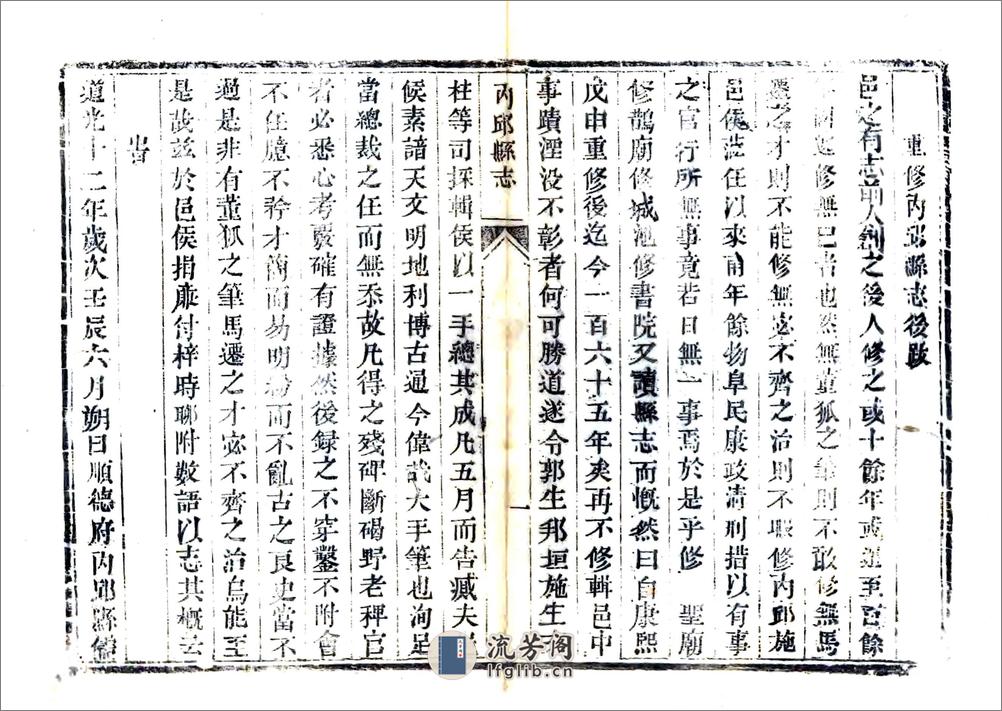 重修內邱縣志後跋
邑之有志前人創之後人修之或十餘年或遲至百餘
修無已者也然無董狐之筆則不敢修無馬
遷之才則不能修無宓不齊之治則不暇修內邱施
邑侯蒞任以來甫年餘物阜民康政清刑措以有事
之官行所無事竟若日無一事焉於是乎修 聖廟
修鵲廟修城池修書院又讀縣志而慨然曰自康熙
戊申重修後迄今一百六十五年矣再不修輯邑中
事蹟湮没不彰者何可勝道遂令郭生邦垣施生存
內邱縣志
一
柱等司採輯侯以一手總其成凡五月而告臧夫
候素諳天文明地利博古通今偉哉大手筆也洵足
當總裁之任而無忝故凡得之殘碑斷碣野老稗官
者必悉心考覈確有證據然後録之不穿鑿不附會
不任臆不矜才簡而易明而不亂古之良史當不
過是非有董狐之筆馬遷之才宓不齊之治烏能至
是故兹於邑侯捐廉付梓時聊附數語以志其概云
旹
道光十二年歲次壬辰六月朔日順德府內邱縣儒
流芳阁
lfglib.cn